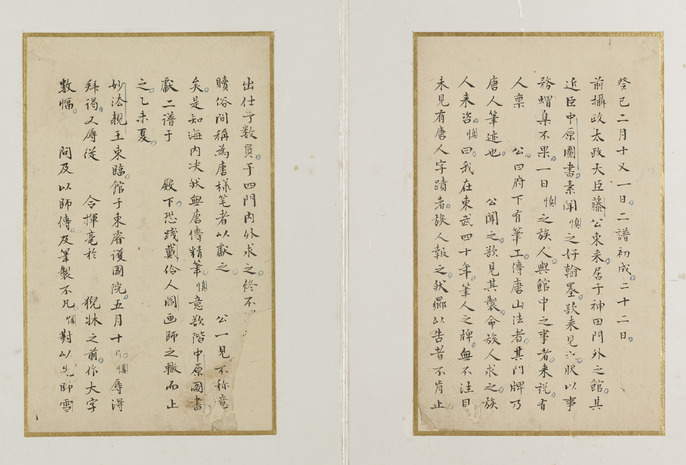 癸已二月十又一日。二譜初成。二十二日。
前攝政太政大臣藤公東来。居于神田門外之館。其
近臣中原圖書。素聞慎之好翰墨。欲来見。状以事
務蝟集不果。一日慎之族人與館中之事者来説有
人稟 公曰府下有筆工。傳唐山法者。其門牌乃
唐人筆迹也。 公聞之欲見其製。命族人求之。族
人来咨。慎曰我在東武四十年。筆人之牌無不注目
未見有唐人字蹟者。族人報之。然以告者不肯止
出仕数員于四門内外求之。終不
俗間稱為唐様筆者以獻之。 公一見不称意
矣。是知海内决然無唐傳精筆。慎意欲階中原圖書
獻二譜于 殿下。恐踐戴人閲画師之轍而止
之。乙未夏。
妙法親王東臨。館于東睿護國院。五月十 慎辱得
拜謁。又辱従 令揮毫於 猊牀之前。作大字
数幅。 問及以師傳。及筆製不凡。慎對以先師雪